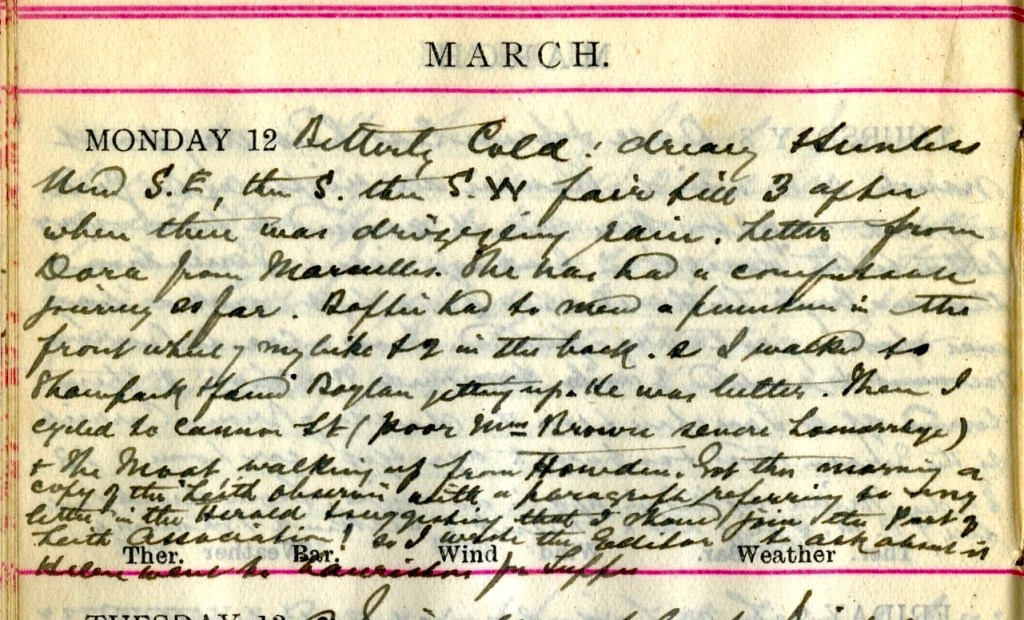 MARCH.
MONDAY 12 Bitterly Cold: dreary Sunless
Wind S.E, then S. then S.W fair till 3 after
when there was drizzling rain. Letter from
Dora from Marseilles. She has had a
journey so far. had to mend a puncture in the
front wheel of my bike & 2 in the back. & I walked to
Shawpark & found Boylan getting up. He was better. Then I
cycled to Cannon St (poor Mrs Brown severe)
& The Moat walking up from Howden. Got this morning a
copy of the "Leith Observer" with a paragraph referring to my
letter in the Herald & suggesting that I should join the Port of
Leith Association! So I wrote the Editor to ask about it
Ther. Bar. Wind Weather
Helen went to Lauriston for Supper
TUESDAY 13